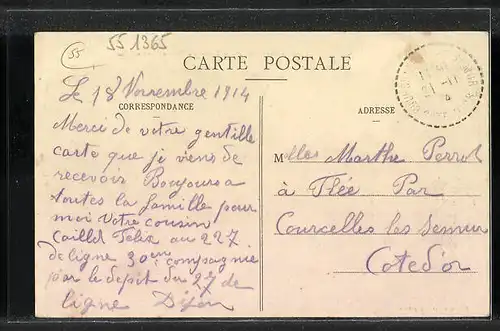 55
55 1365
CARTE POSTALE
Le 18 Novembre 1914
CORRESPONDANCE
ADRESSE
Merci de votre gentille
carte que je viens de
recevoir Bonjours a
toutes la famille pour
moi Votre cousin
Caillet Felix au 227
de ligne 30eme compagnie
par le depit du 27 de
ligne Dijon
Melles Marthe Perrot
à Flée Par
Courcelles les Semur
Coted'or